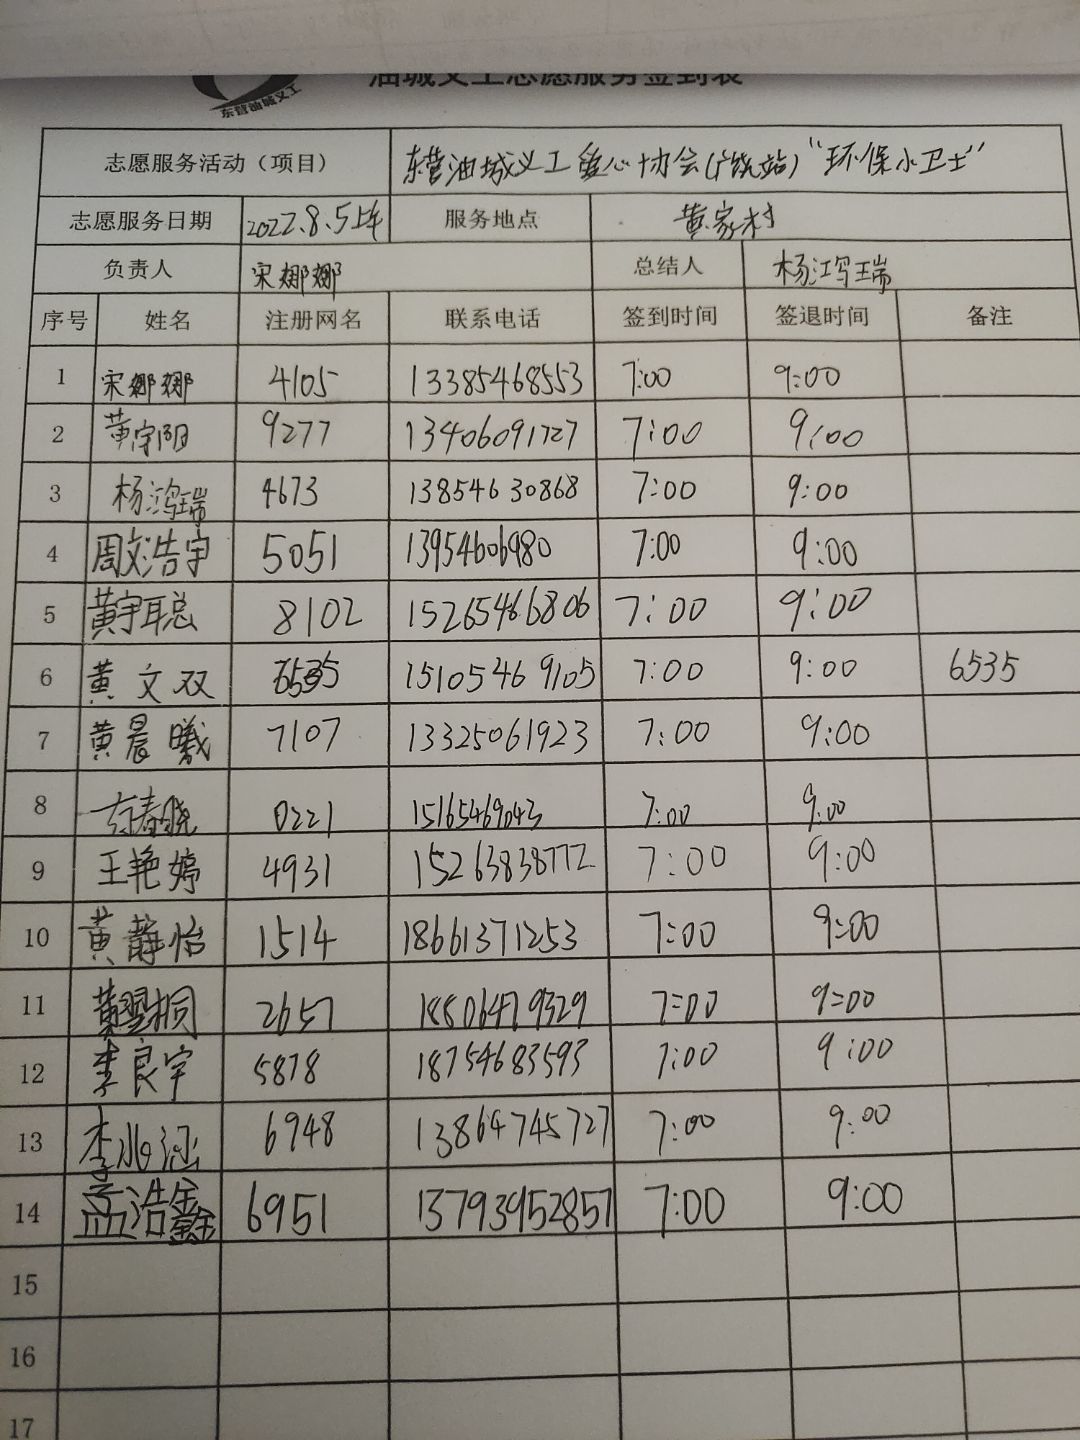 油城义工志愿服务签到表
东营油城义工
志愿服务活动（项目） 东营油城义工爱心协会(广饶站)“环保小卫士”
志愿服务日期 2022.8.5上午 服务地点 黄家村
负责人 宋娜娜 总结人 杨鸿瑞
序号 姓名 注册网名 联系电话 签到时间 签退时间 备注
1 宋娜娜 4105 13385468553 7:00 9:00
2 黄宇阳 9277 13406091727 7:00 9:00
3 杨鸿瑞 4673 13854630868 7:00 9:00
4 周文浩宇 5051 13954606980 7:00 9:00
5 黄宇聪 8102 15265466806 7:00 9:00
6 黄文双 6535 15105469105 7:00 9:00 6535
7 黄晨曦 7107 13325061923 7:00 9:00
8 春晓 0221 15165469043 7:00 9:00
9 王艳婷 4931 15263838772 7:00 9:00
10 黄静怡 1514 18661371253 7:00 9:00
11 黄翌桐 2657 18806479329 7:00 9:00
12 李良宇 5878 18754683593 7:00 9:00
13 李兆涵 6948 13864745727 7:00 9:00
14 孟浩鑫 6951 13793952857 7:00 9:00
15
16
17